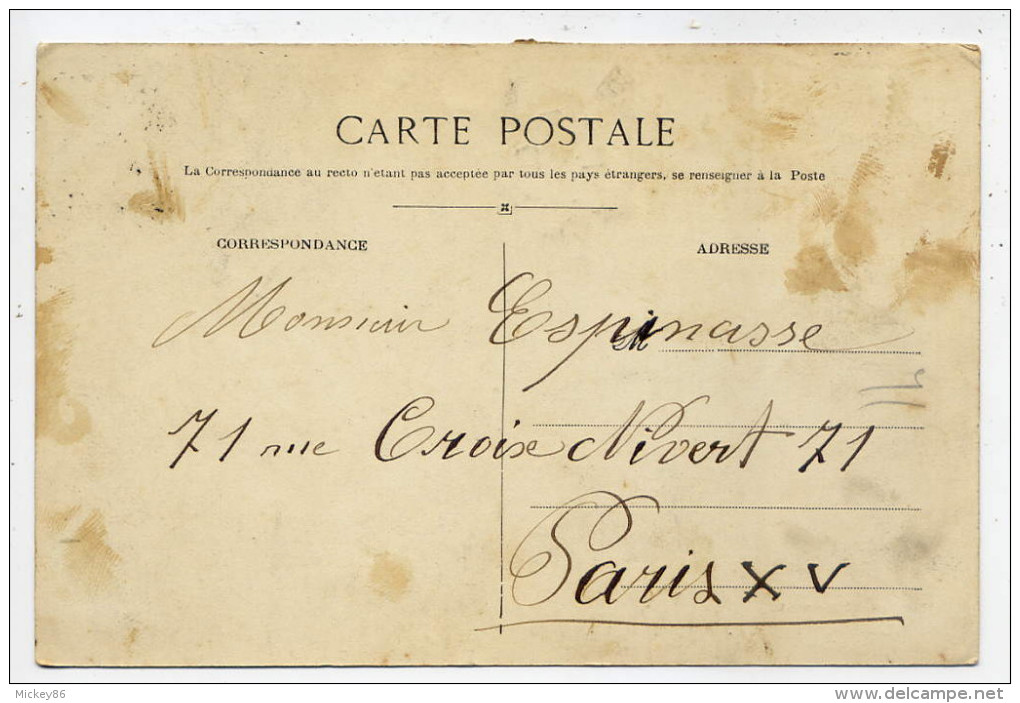 CARTE POSTALE
La Correspondance au recto n'etant pas acceptée par tous les pays étrangers, se renseigner à la Poste
CORRESPONDANCE
ADRESSE
Monsieur Espinasse
71 rue Croix Nivert 71
Paris XV
Mickey86
delcampe.net